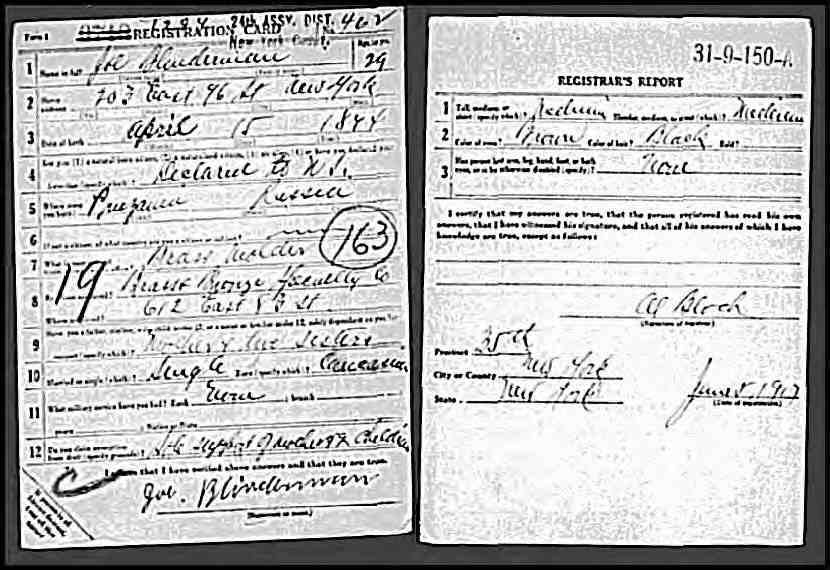 Form 1 1294 24th ASSY. DIST. No. 402
REGISTRATION CARD
New York County.
1 Name in full Joe Blinderman Age, in yrs. 29
2 Home address 203 East 96 St New York
3 Date of birth April 15
4 Are you (1) a natural-born citizen, (2) a naturalized citizen, (3) an alien, (4) or have you declared your
intention (specify which)? Declared
5 Where were you born? Russia
6 If not a citizen, of what country are you a citizen or subject?
163
7 Brass Molder
19
8 Brass Bronze Co
612 East 83 St
9 Have you a father, mother, wife, child under 12, or a sister or brother under 12, solely dependent on you for
support (specify which)? Mother & two Sisters
10 Married or single (which)? Single Race (specify which)? Caucasian
11 What military service have you had? Rank None ; branch
years ; Nation or State
12 Do you claim exemption from draft (specify grounds)? Sole support of mother & 2 children
I affirm that I have verified above answers and that they are true.
Joe. Blinderman
(Signature or mark)
31-9-150-A
REGISTRAR'S REPORT
1 Tall, medium, or short (specify which)? Medium Slender, medium, or stout (which)? Medium
2 Color of eyes? Brown Color of hair? Black Bald?
3 Has person lost arm, leg, hand, foot, or both
eyes, or is he otherwise disabled (specify)? None
I certify that my answers are true, that the person registered has read his own
answers, that I have witnessed his signature, and that all of his answers of which I have
knowledge are true, except as follows:
Al Bloch
(Signature of registrar)
Precinct 35th
City or County New York
State New York June 5, 1917
(Date of registration)